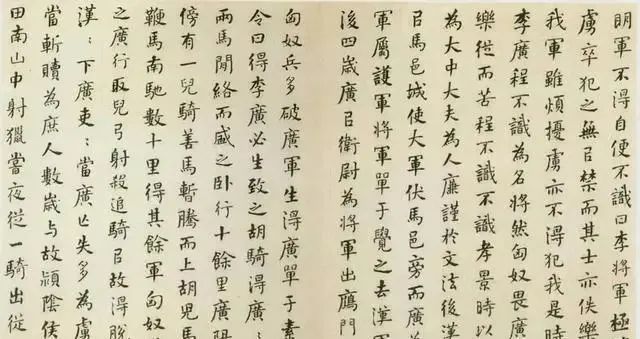 明軍不得自便不識曰李將軍極
虜卒犯之無㠯禁而其士亦佚樂
我軍雖煩擾虜亦不得犯我是時
李廣程不識為名將然匈奴畏廣
樂從而苦程不識不識孝景時以
為大中大夫為人廉謹於文法後漢
㠯馬邑城使大軍伏馬邑旁而廣為
軍屬護軍將軍單于覺之去漢軍
後四歲廣㠯衛尉為將軍出鴈門
匈奴兵多破廣軍生得廣單于素
令曰得李廣必生致之胡騎得廣:
兩馬閒絡而盛之卧行十餘里廣陽
傍有一兒騎善馬暫騰而上胡兒馬
鞭馬南馳數十里得其餘軍匈奴
之廣行取兒弓射殺追騎㠯故得脫
漢:下廣吏:當廣亡失多為虜
當斬贖為庶人數歲与故潁陰侯
田南山中射獵嘗夜從一騎出從